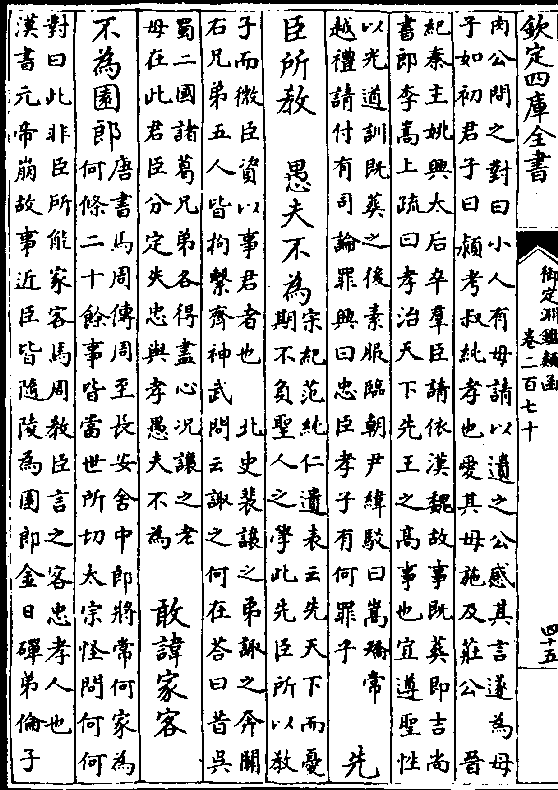 欽定四庫全書
御定淵鑑類函
卷二百七十
四十五
肉公問之對曰小人有母請以遺之公感其言遂為母
子如初君子曰潁考叔純孝也愛其母施及莊公 晉
紀秦主姚興太后卒羣臣請依漢魏故事既葬即吉尚
書郎李嵩上疏曰孝治天下先王之高事也宜遵聖性
以光道訓既葬之後素服臨朝尹緯駁曰嵩矯常
越禮請付有司論罪興曰忠臣孝子有何罪乎
先
臣所教 愚夫不為
宋紀范純仁遺表云先天下而憂
期不負聖人之學此先臣所以教
子而微臣資以事君者也 北史裴讓之弟諏之奔關
右兄弟五人皆拘繫齊神武問云諏之何在答曰昔吳
蜀二國諸葛兄弟各得盡心况讓之老
母在此君臣分定失忠與孝愚夫不為
敢諱家客
不為園郎
唐書馬周傳周至長安舍中郎將常何家為
何條二十餘事皆當世所切太宗怪問何何
對曰此非臣所能家客馬周教臣言之客忠孝人也
漢書元帝崩故事近臣皆隨陵為園郎金日磾弟倫子